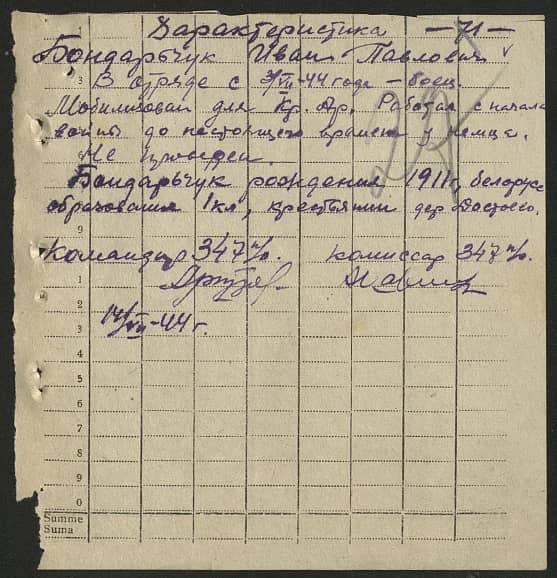 Характеристика —71—
Бондарьчук Иван Павлович
В отряде с 3/VII-44 года — боец.
Мобилизован для Кр. Ар. Работал с начала
войны до настоящего времени у немца.
Не проверен.
Бондарьчук рождения 1911 г, белорус
образования 1 кл, крестьянин дер. Достоево.
Командир 347 п/о. комиссар 347 п/о.
14/VII-44 г.
3
9
0
1
2
3
4
5
6
7
8
9
0
Summe
Suma